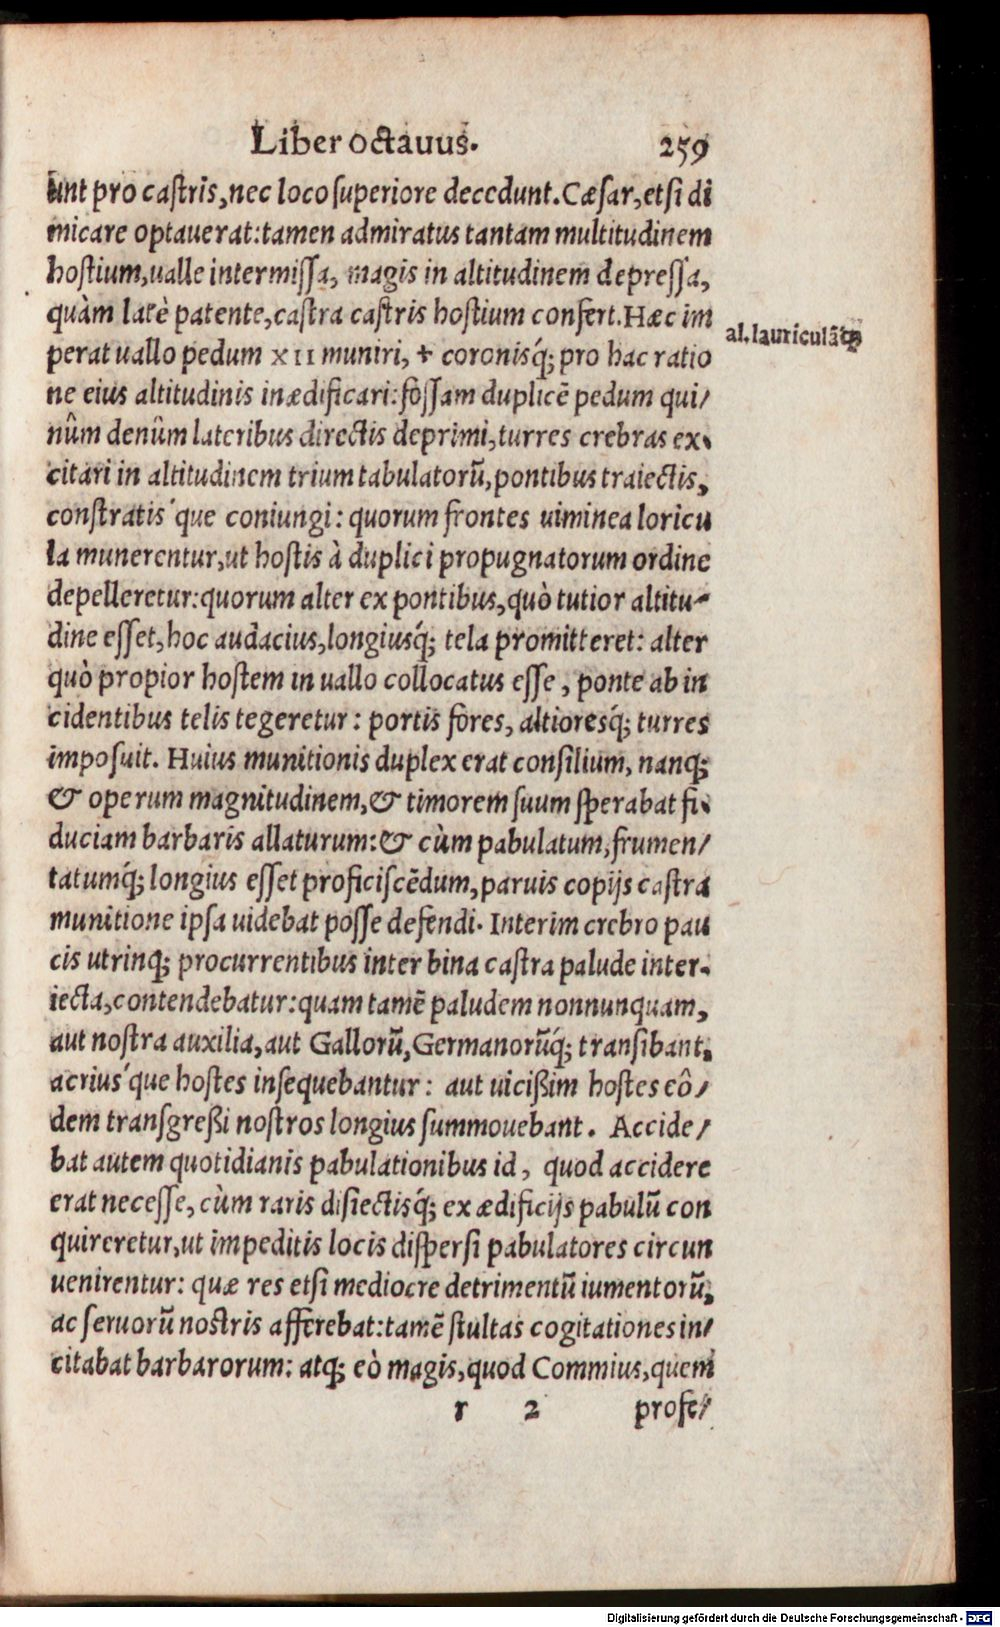 Liber octavus. 259
unt pro castris, nec loco superiore decedunt. Cæsar, etsi di
micare optauerat: tamen admiratus tantam multitudinem
hostium, ualle intermissa, magis in altitudinem depressa,
quàm latè patente, castra castris hostium confert. Hæc im
al. lauriculā
perat uallo pedum XII muniri, + coronisq́; pro hac ratio
ne eius altitudinis inædificari: fossam duplicē pedum qui/
nûm denûm lateribus directis deprimi, turres crebras ex-
citari in altitudinem trium tabulatorū, pontibus traiectis,
constratis´que coniungi: quorum frontes uiminea loricu
la munerentur, ut hostis à duplici propugnatorum ordine
depelleretur: quorum alter ex pontibus, quò tutior altitu-
dine esset, hoc audacius, longiusq́; tela promitteret: alter
quò propior hostem in uallo collocatus esse, ponte ab in
cidentibus telis tegeretur: portis fores, altioresq́; turres
imposuit. Huius munitionis duplex erat consilium, nanq;
& operum magnitudinem, & timorem suum sperabat fi-
duciam barbaris allaturum: & cùm pabulatum, frumen/
tatumq́; longius esset proficiscēdum, paruis copijs castra
munitione ipsa uidebat posse defendi. Interim crebro pau
cis utrinq; procurrentibus inter bina castra palude inter-
iecta, contendebatur: quam tamē paludem nonnunquam,
aut nostra auxilia, aut Gallorū, Germanorūq́; transibant,
acrius´que hostes insequebantur: aut uicißim hostes eô/
dem transgreßi nostros longius summouebant. Accide/
bat autem quotidianis pabulationibus id, quod accidere
erat necesse, cùm raris disiectisq́; ex ædificijs pabulū con
quireretur, ut impeditis locis dispersi pabulatores circun
uenirentur: quæ res etsi mediocre detrimentū iumentorū,
ac seruorū nostris afferebat: tamē stultas cogitationes in/
citabat barbarorum: atq; eò magis, quod Commius, quem
r 2 profe/
Digitalisierung gefördert durch die Deutsche Forschungsgemeinschaft - DFG